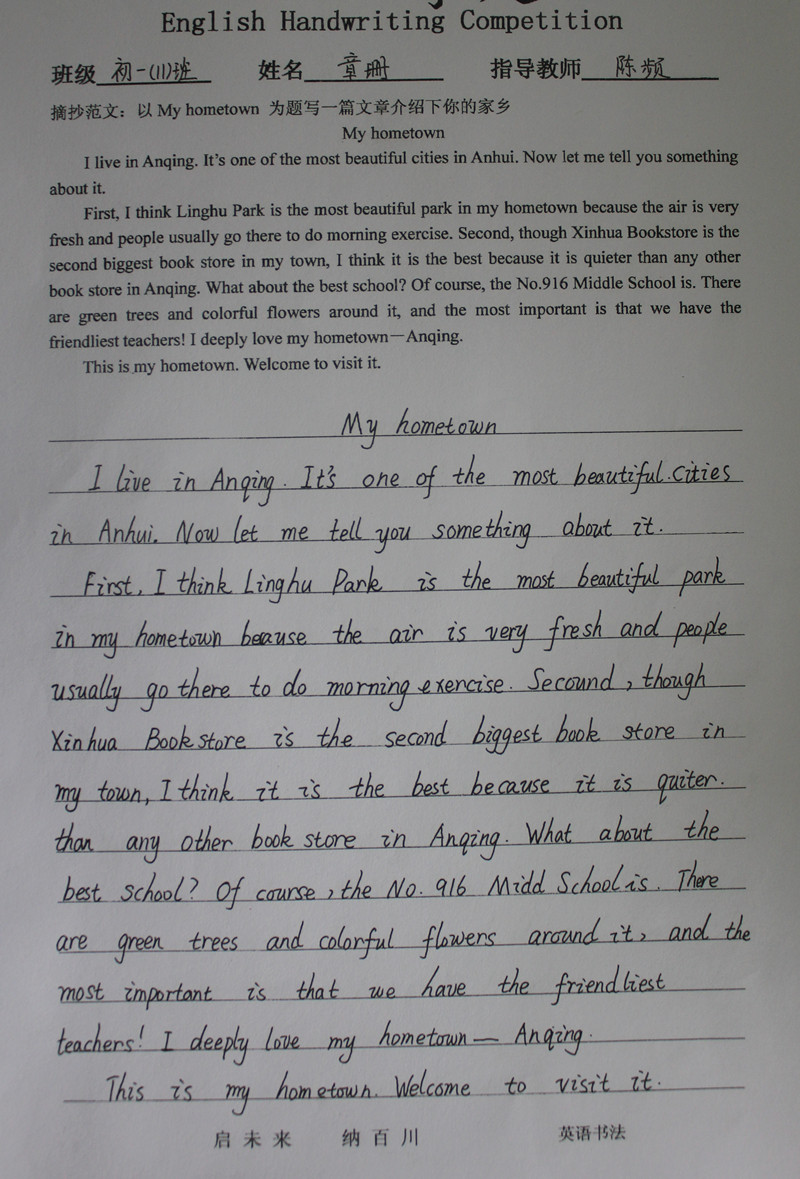 English Handwriting Competition
班级 初一(11)班 姓名 章珊 指导教师 陈频
摘抄范文：以 My hometown 为题写一篇文章介绍下你的家乡
My hometown
I live in Anqing. It's one of the most beautiful cities in Anhui. Now let me tell you something
about it.
First, I think Linghu Park is the most beautiful park in my hometown because the air is very
fresh and people usually go there to do morning exercise. Second, though Xinhua Bookstore is the
second biggest book store in my town, I think it is the best because it is quieter than any other
book store in Anqing. What about the best school? Of course, the No.916 Middle School is. There
are green trees and colorful flowers around it, and the most important is that we have the
friendliest teachers! I deeply love my hometown—Anqing.
This is my hometown. Welcome to visit it.
My hometown
I live in Anqing. It's one of the most beautiful cities
in Anhui. Now let me tell you something about it.
First, I think Linghu Park is the most beautiful park
in my hometown beause the air is very fresh and people
usually go there to do morning exercise. Secound, though
Xinhua Bookstore is the second biggest book store in
my town, I think it is the best because it is quiter.
than any other book store in Anqing. What about the
best school? Of course, the No. 916 Midd School is. There
are green trees and colorful flowers around it, and the
most important is that we have the friendliest
teachers! I deeply love my hometown — Anqing.
This is my hometown. Welcome to visit it.
启未来 纳百川 英语书法